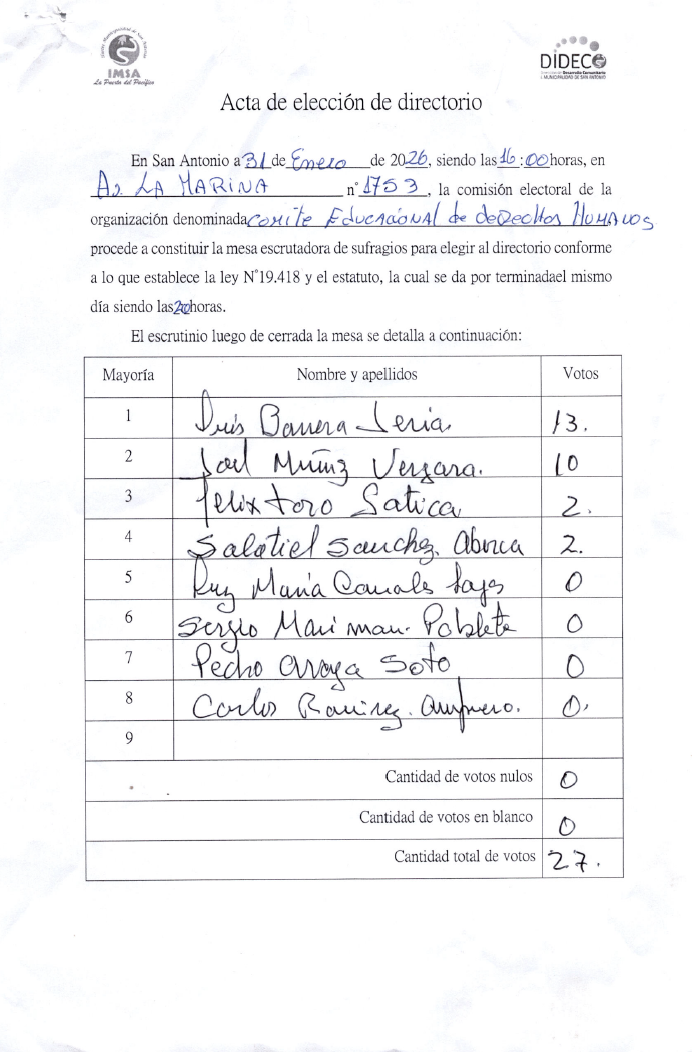 IMSA
La Puerta del Pacífico
DIDECO
Dirección de Desarrollo Comunitario
I. MUNICIPALIDAD DE SAN ANTONIO
Acta de elección de directorio
En San Antonio a 31 de Enero de 2026, siendo las 16:00 horas, en
Av. LA MARINA n° 1753, la comisión electoral de la
organización denominada COMITE EDUCACIONAL de deRECHOS HUMANOS
procede a constituir la mesa escrutadora de sufragios para elegir al directorio conforme
a lo que establece la ley N°19.418 y el estatuto, la cual se da por terminadael mismo
día siendo las 20 horas.
El escrutinio luego de cerrada la mesa se detalla a continuación:
Mayoría Nombre y apellidos Votos
1 Luis Barrera 13.
2 Muñoz Vergara. 10
3 Felix toro Satica 2.
4 Salatiel Sanchez. 2.
5 María 0
6 Sergio Mariman. Poblete 0
7 Pedro Soto 0
8 Carlos Ramirez. 0.
9
Cantidad de votos nulos 0
Cantidad de votos en blanco 0
Cantidad total de votos 27.